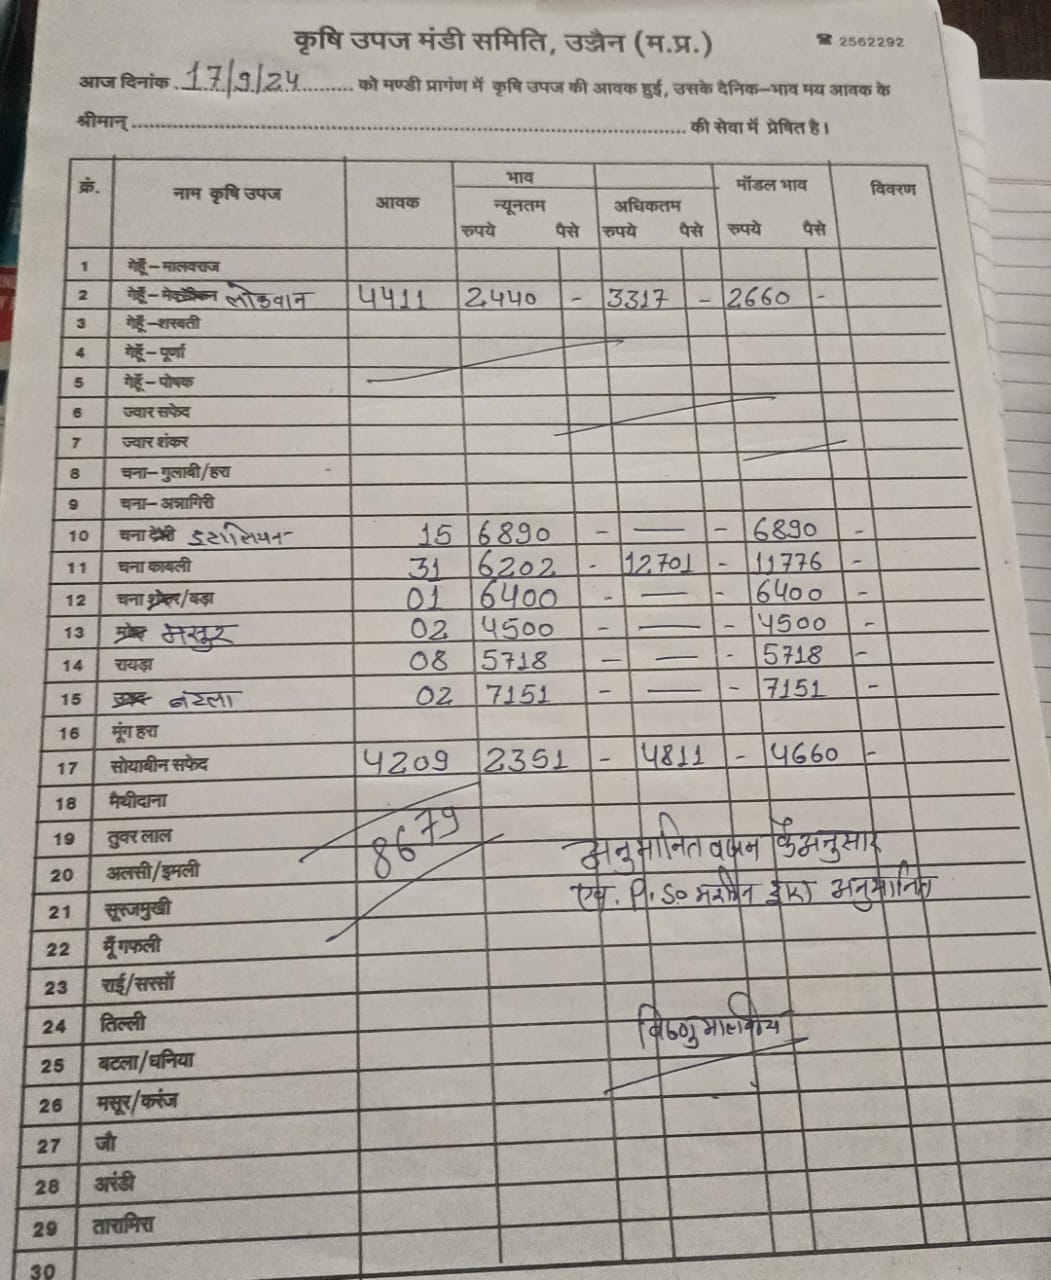 कृषि उपज मंडी समिति, उज्जैन (म.प्र.) ☎ 2562292
आज दिनांक .17/9/24.......... को मण्डी प्रागंण में कृषि उपज की आवक हुई, उसके दैनिक-भाव मय आवक के
श्रीमान् ........................................................................ की सेवा में प्रेषित है।
क्रं. नाम कृषि उपज आवक भाव मॉडल भाव विवरण
न्यूनतम अधिकतम
रुपये पैसे रुपये पैसे रुपये पैसे
1 गेहूँ-मालवराज
2 गेहूँ- लोकवान 4411 2440 - 3317 - 2660 -
3 गेहूँ-शरबती
4 गेहूँ-पूर्णा
5 गेहूँ-पोषक
6 ज्वार सफेद
7 ज्वार शंकर
8 चना-गुलाबी/हरा
9 चना-अन्नागिरी
10 चना देशी इटालियन 15 6890 - — - 6890 -
11 चना काबली 31 6202 - 12701 - 11776 -
12 चना /बड़ा 01 6400 - — - 6400 -
13 मसुर 02 4500 - — - 4500 -
14 रायड़ा 08 5718 - — - 5718 -
15 उड़द बटला 02 7151 - — - 7151 -
16 मूंग हरा
17 सोयाबीन सफेद 4209 2351 - 4811 - 4660 -
18 मैथीदाना
19 तुवर लाल 8679
20 अलसी/इमली अनुमानित वजन के अनुसार
21 सूरजमुखी एवं पी.ओ.एस. द्वारा अनुमानित
22 मूँगफली
23 राई/सरसों
24 तिल्ली विष्णु मालवीय
25 बटला/धनिया
26 मसूर/करंज
27 जौ
28 अरंडी
29 तारामिरा
30